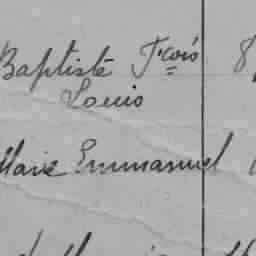 Baptiste Fçois 8
Louis
Marie Emmanuel